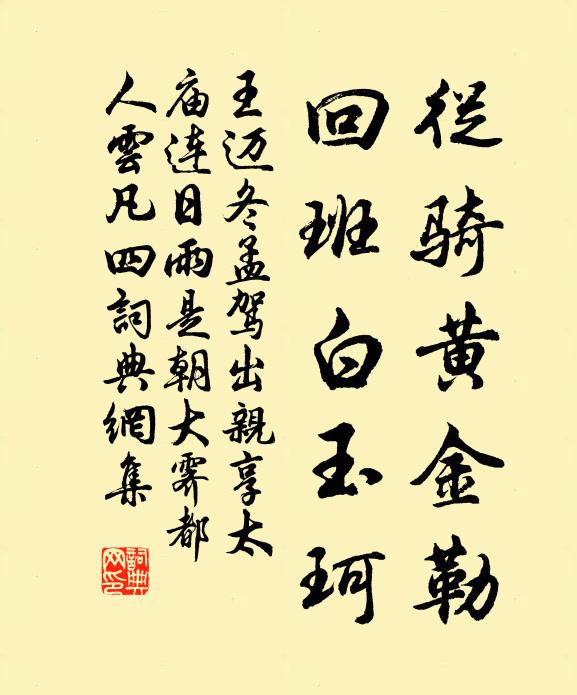 從骑黄金勒
回班白玉珂
王迈冬孟駕出親享太
庙連日雨是朝大霁都
人雲凡四詞典網集
詞典网印